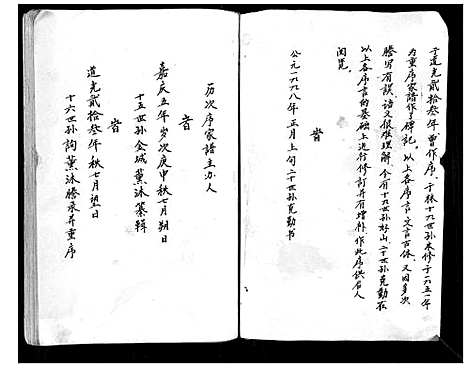 于道光贰拾叁年曾作序，于后十九世孙本修于一九五一年
为重序家谱作了碑记。以上各序言，文言古体，又因多次
誊写有误，语文很难理解，今有十九世孙好山，二十世孙克勤在
以上各序言的基础上进行修订并有增补，作此序供后人
阅览。
旹
公元一九九八年正月上旬二十世孙克勤书
历次序家谱主办人
旹
嘉庆五年岁次庚申秋七月朔日
十五世孙金城薰沐纂辑
旹
道光贰拾叁年秋七月望日
十六世孙询薰沐誊录并重序